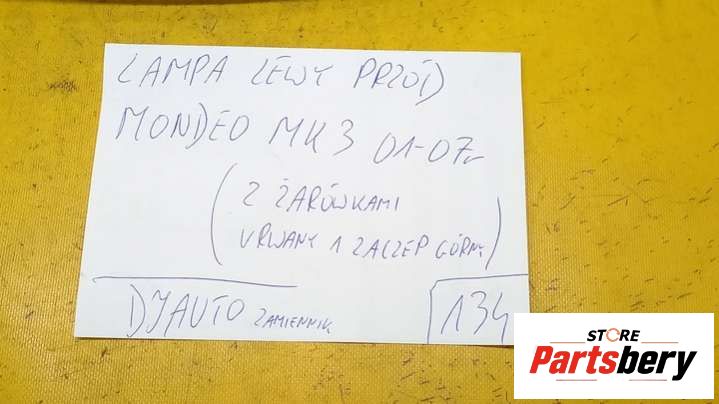 LAMPA LEWY PRZÓD
MONDEO MK3 01-07r
(Z ŻARÓWKAMI
URWANY 1 ZACZEP GÓRNY)
DJAUTO ZAMIENNIK
134
STORE
Partsbery